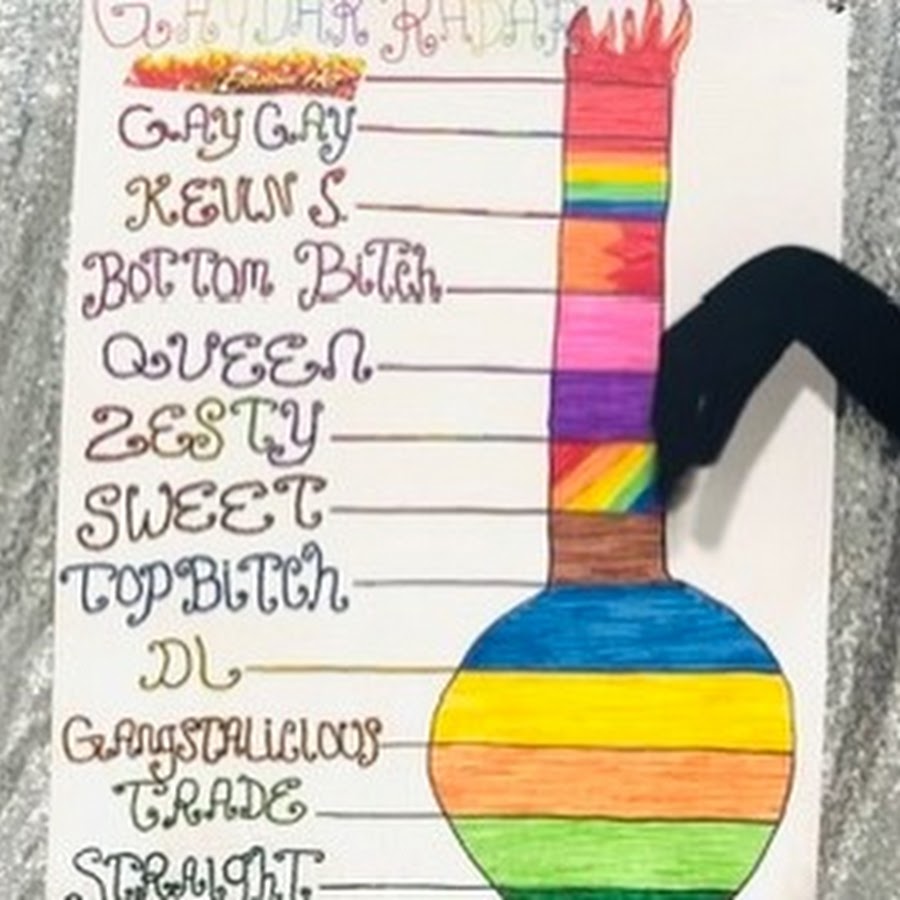 GAYDAR RADAR
GAY GAY
KEVIN S.
BOTTOM BITCH
QUEEN
ZESTY
SWEET
TOP BITCH
DL
GANGSTALICIOUS
TRADE
STRAIGHT